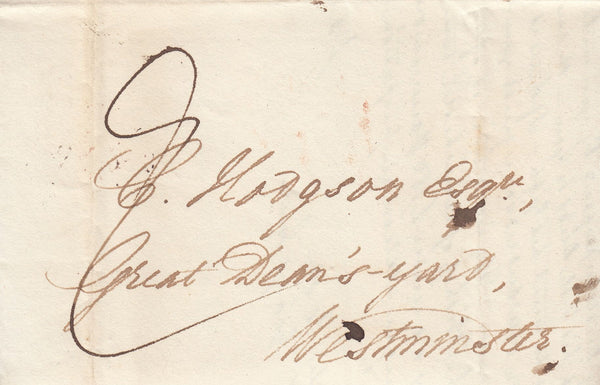 C. Hodgson Esqr.,
Great Dean's-yard,
Westminster.